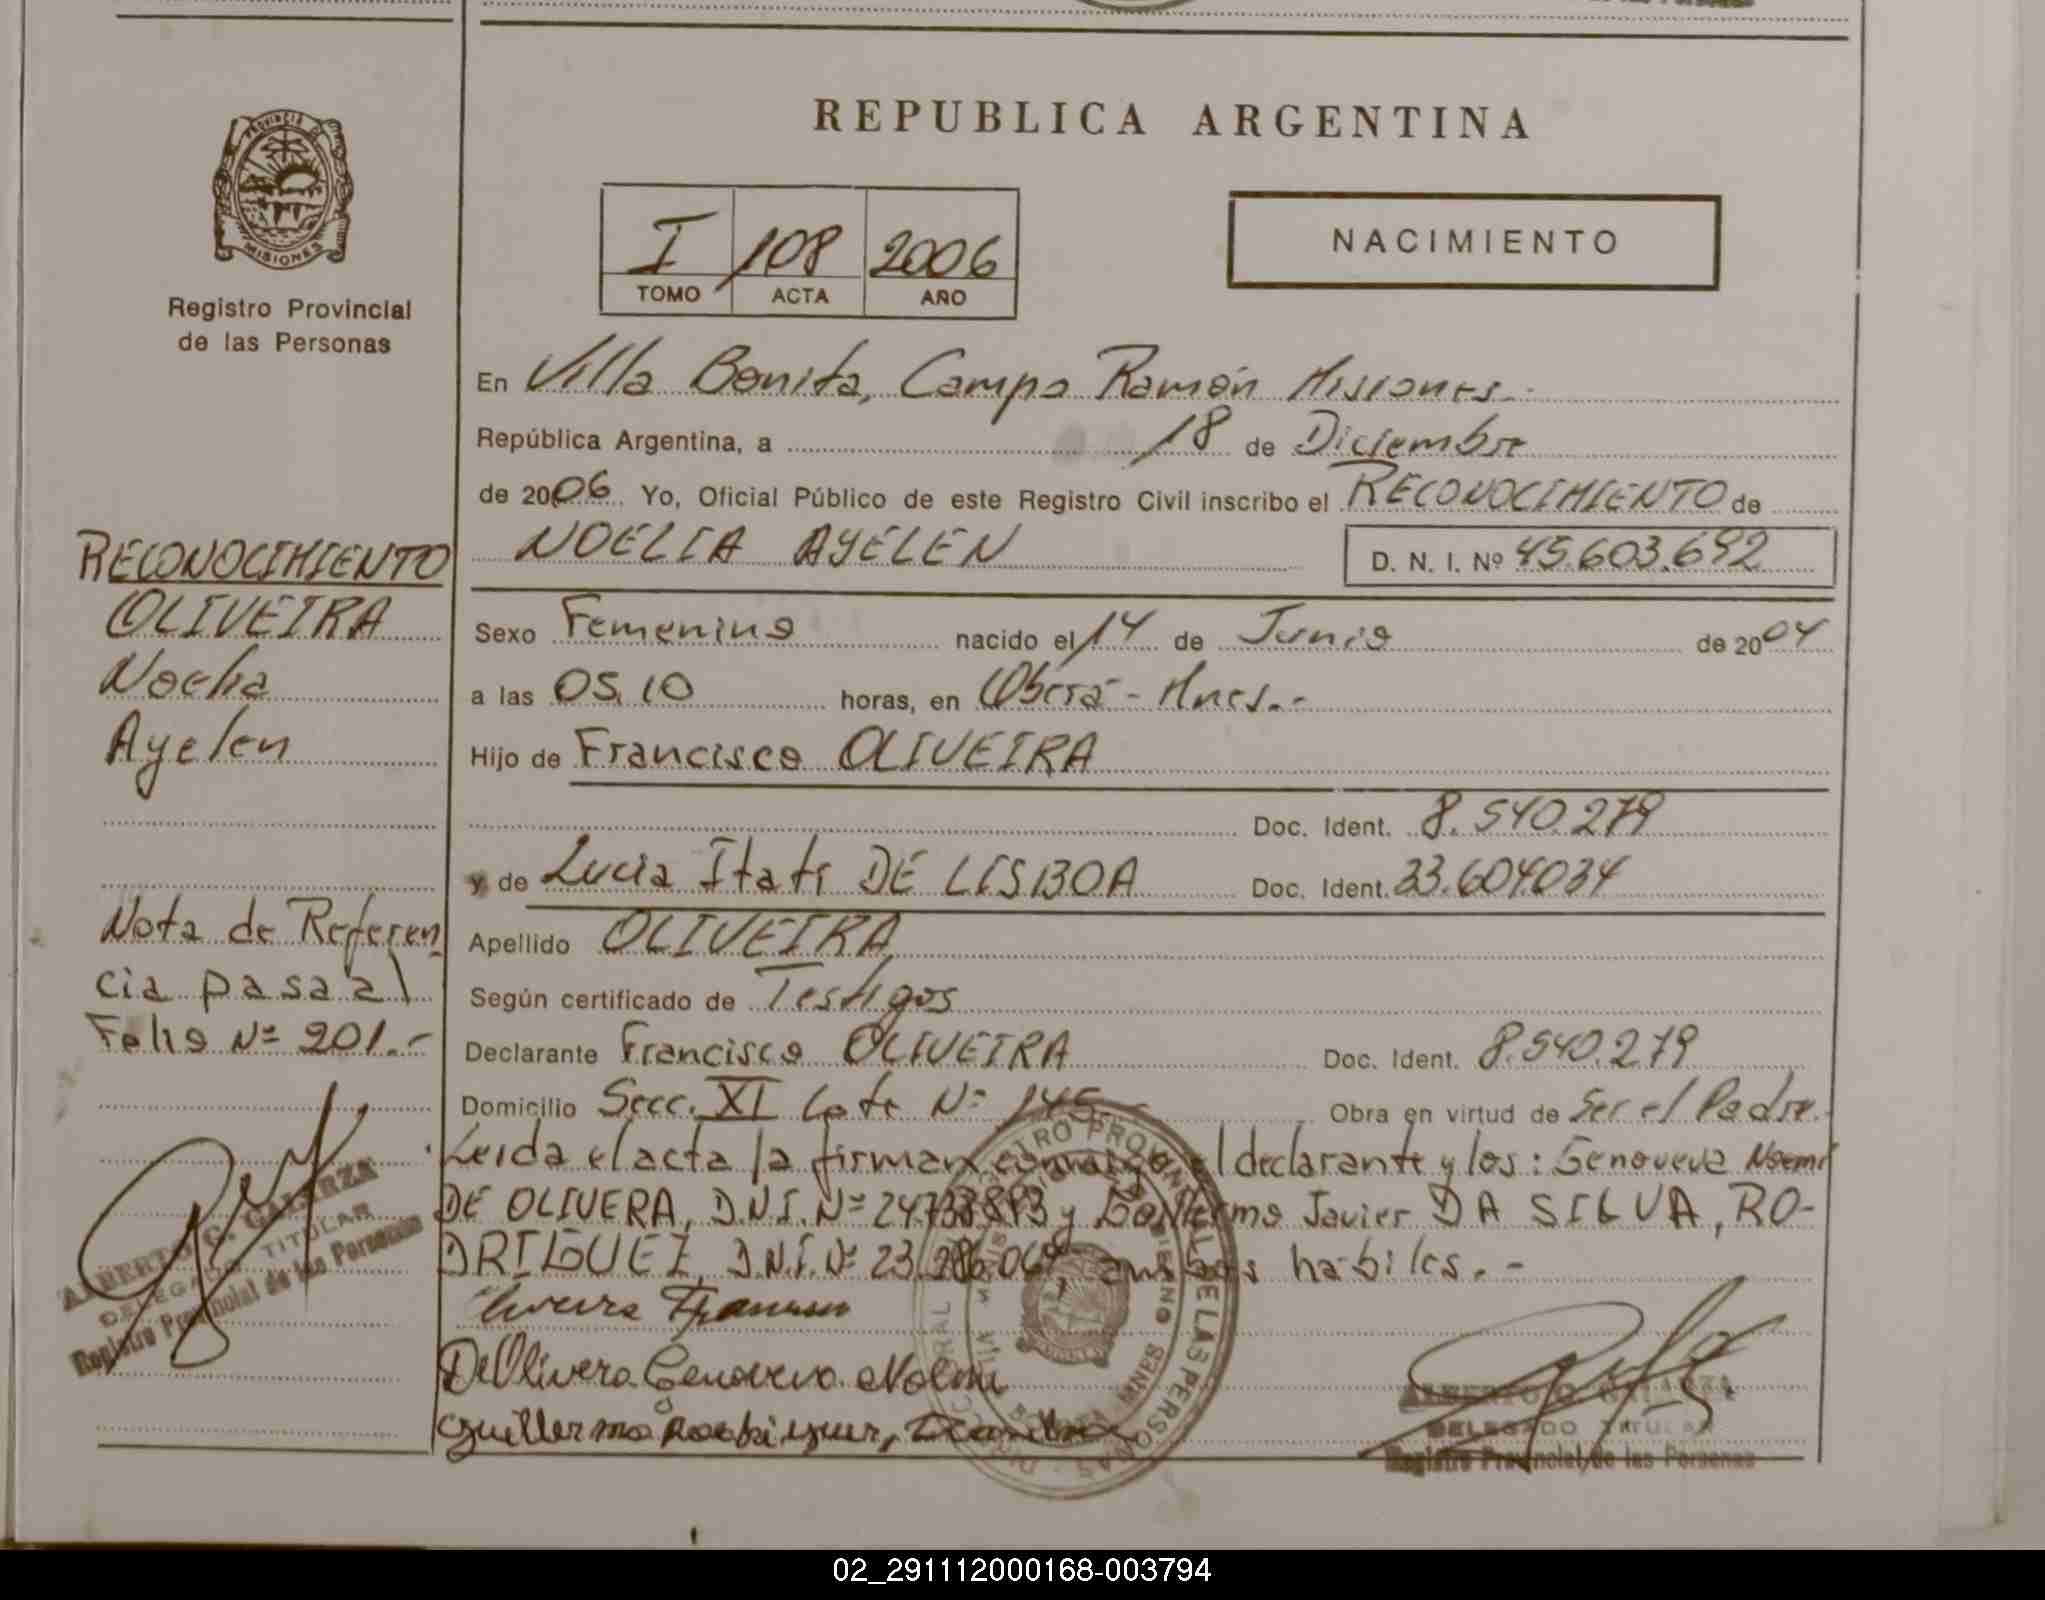 REPUBLICA ARGENTINA
PROVINCIA DE
MISIONES
Registro Provincial
de las Personas
I 108 2006
TOMO ACTA AÑO
NACIMIENTO
En Villa Bonita, Campo Ramón Misiones.-
República Argentina, a 18 de Diciembre
de 2006 Yo, Oficial Público de este Registro Civil inscribo el RECONOCIMIENTO de
NOELIA AYELEN D. N. I. Nº 45.603.692
Sexo Femenino nacido el 14 de Junio de 2004
a las 05,10 horas, en Oberá - Mnes.-
Hijo de Francisco OLIVEIRA
Doc. Ident. 8.540.279
y de Lucia Itati DE LISBOA Doc. Ident. 33.604034
Apellido OLIVEIRA
Según certificado de Testigos
Declarante Francisco OLIVEIRA Doc. Ident. 8.540.279
Domicilio Secc. XI Lote Nº 145.- Obra en virtud de Ser el Padre.
Leida el acta la firman conmigo el declarante y los: Genoveva Noemi
DE OLIVERA, D.N.I. Nº 24.738893 y Guillermo Javier DA SILVA, RO-
DRIGUEZ, D.N.I. Nº 23.286.06, ambos habiles.-
De Olivera Genoveva Noemi
Guillermo Rodriguez,
RECONOCIMIENTO
OLIVEIRA
Noelia
Ayelen
Nota de Referen
cia pasa al
Folio Nº 201.-
ALBERTO G. GALARZA
DELEGADO TITULAR
Registro Provincial de las Personas
ALBERTO G. GALARZA
DELEGADO TITULAR
Registro Provincial de las Personas
02_291112000168-003794